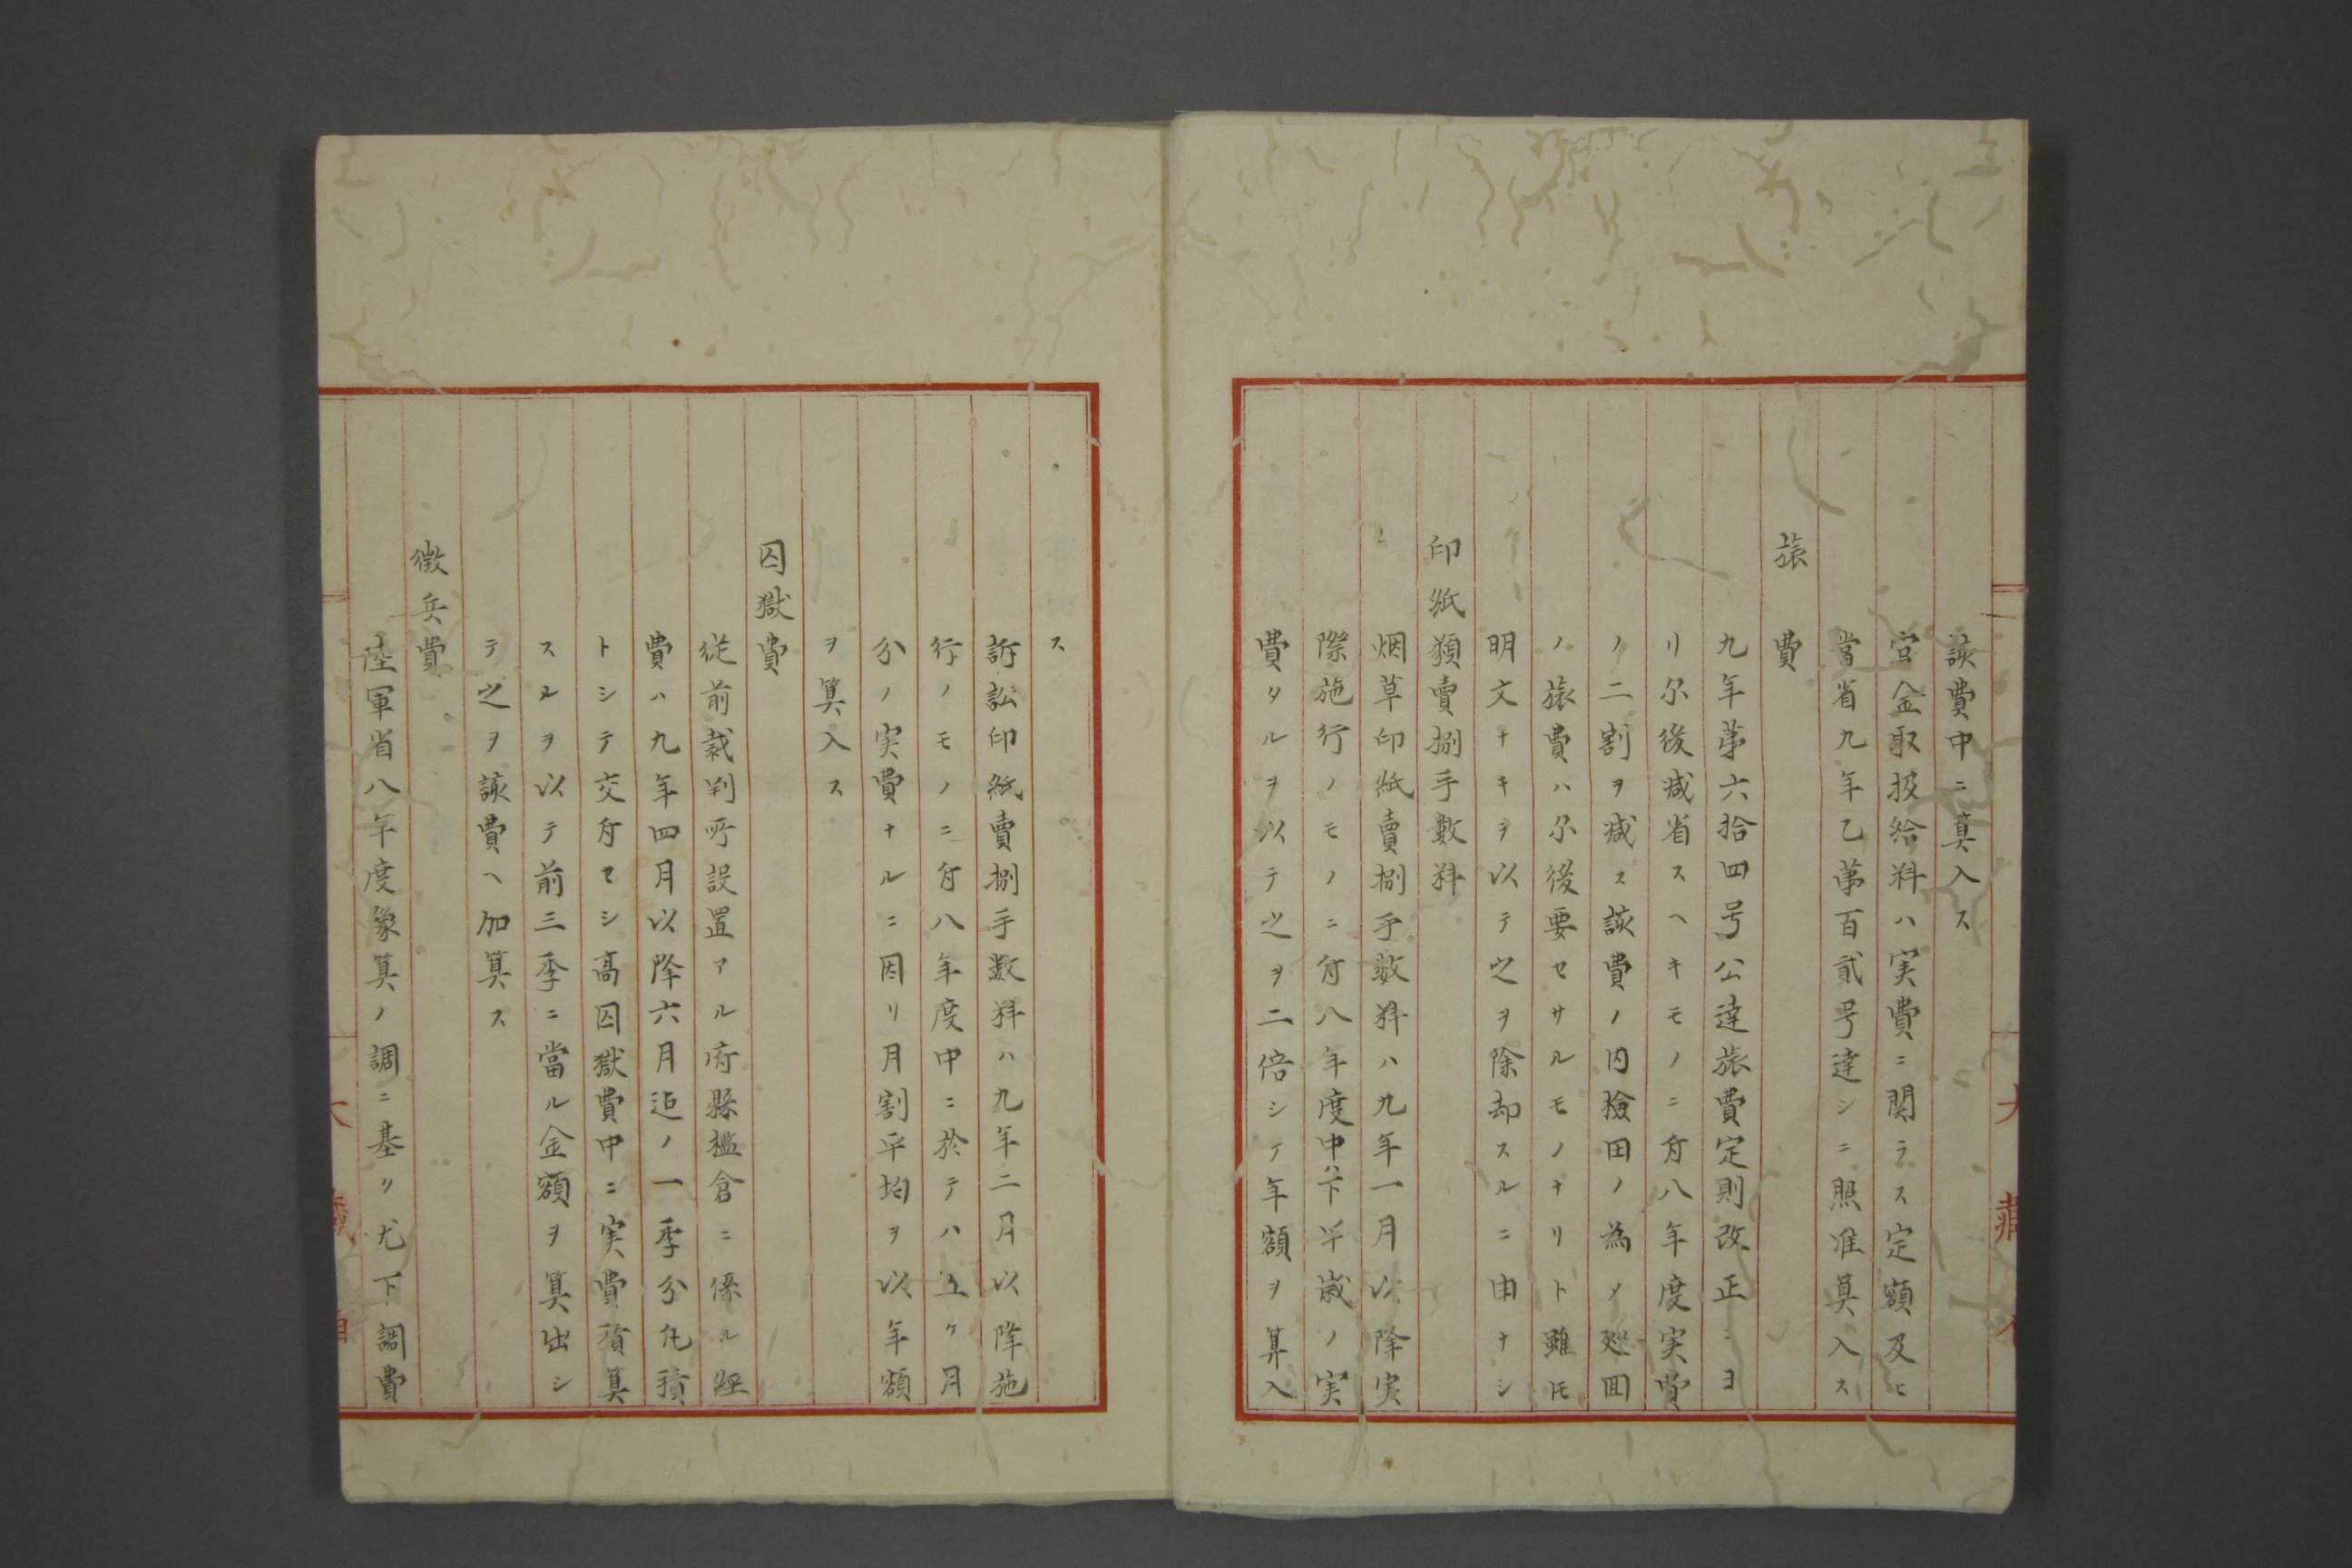 該費中ニ算入ス
官金取扱給料ハ実費ニ関ラス定額及ヒ
當省九年乙第百貳号達シニ照准算入ス
旅費
九年第六拾四号公達旅費定則改正ニヨ
リ尓後减省スヘキモノニ付八年度実費
ノ二割ヲ减ス該費ノ内檢田ノ為メ廻囬
ノ旅費ハ尓後要セサルモノナリト雖𪜈
明文ナキヲ以テ之ヲ除却スルニ由ナシ
印紙類賣捌手數料
烟草印紙賣捌手数料ハ九年一月以降実
際施行ノモノニ付八年度中ハ下半歳ノ実
費タルヲ以テ之ヲ二倍シテ年額ヲ算入
ス
訴訟印紙賣捌手数料ハ九年二月以降施
行ノモノニ付八年度中ニ於テハ五ケ月
分ノ実費ナルニ因リ月割平均ヲ以年額
ヲ算入ス
囚獄費
従前裁判所設置アル府縣檻倉ニ係ル經
費ハ九年四月以降六月迠ノ一季分化積
トシテ交付セシ高囚獄費中ニ実費積算
スルヲ以テ前三季ニ當ル金額ヲ算出シ
テ之ヲ該費ヘ加算ス
徴兵費
陸軍省八年度豫算ノ調ニ基リ尤下調費
大藏省